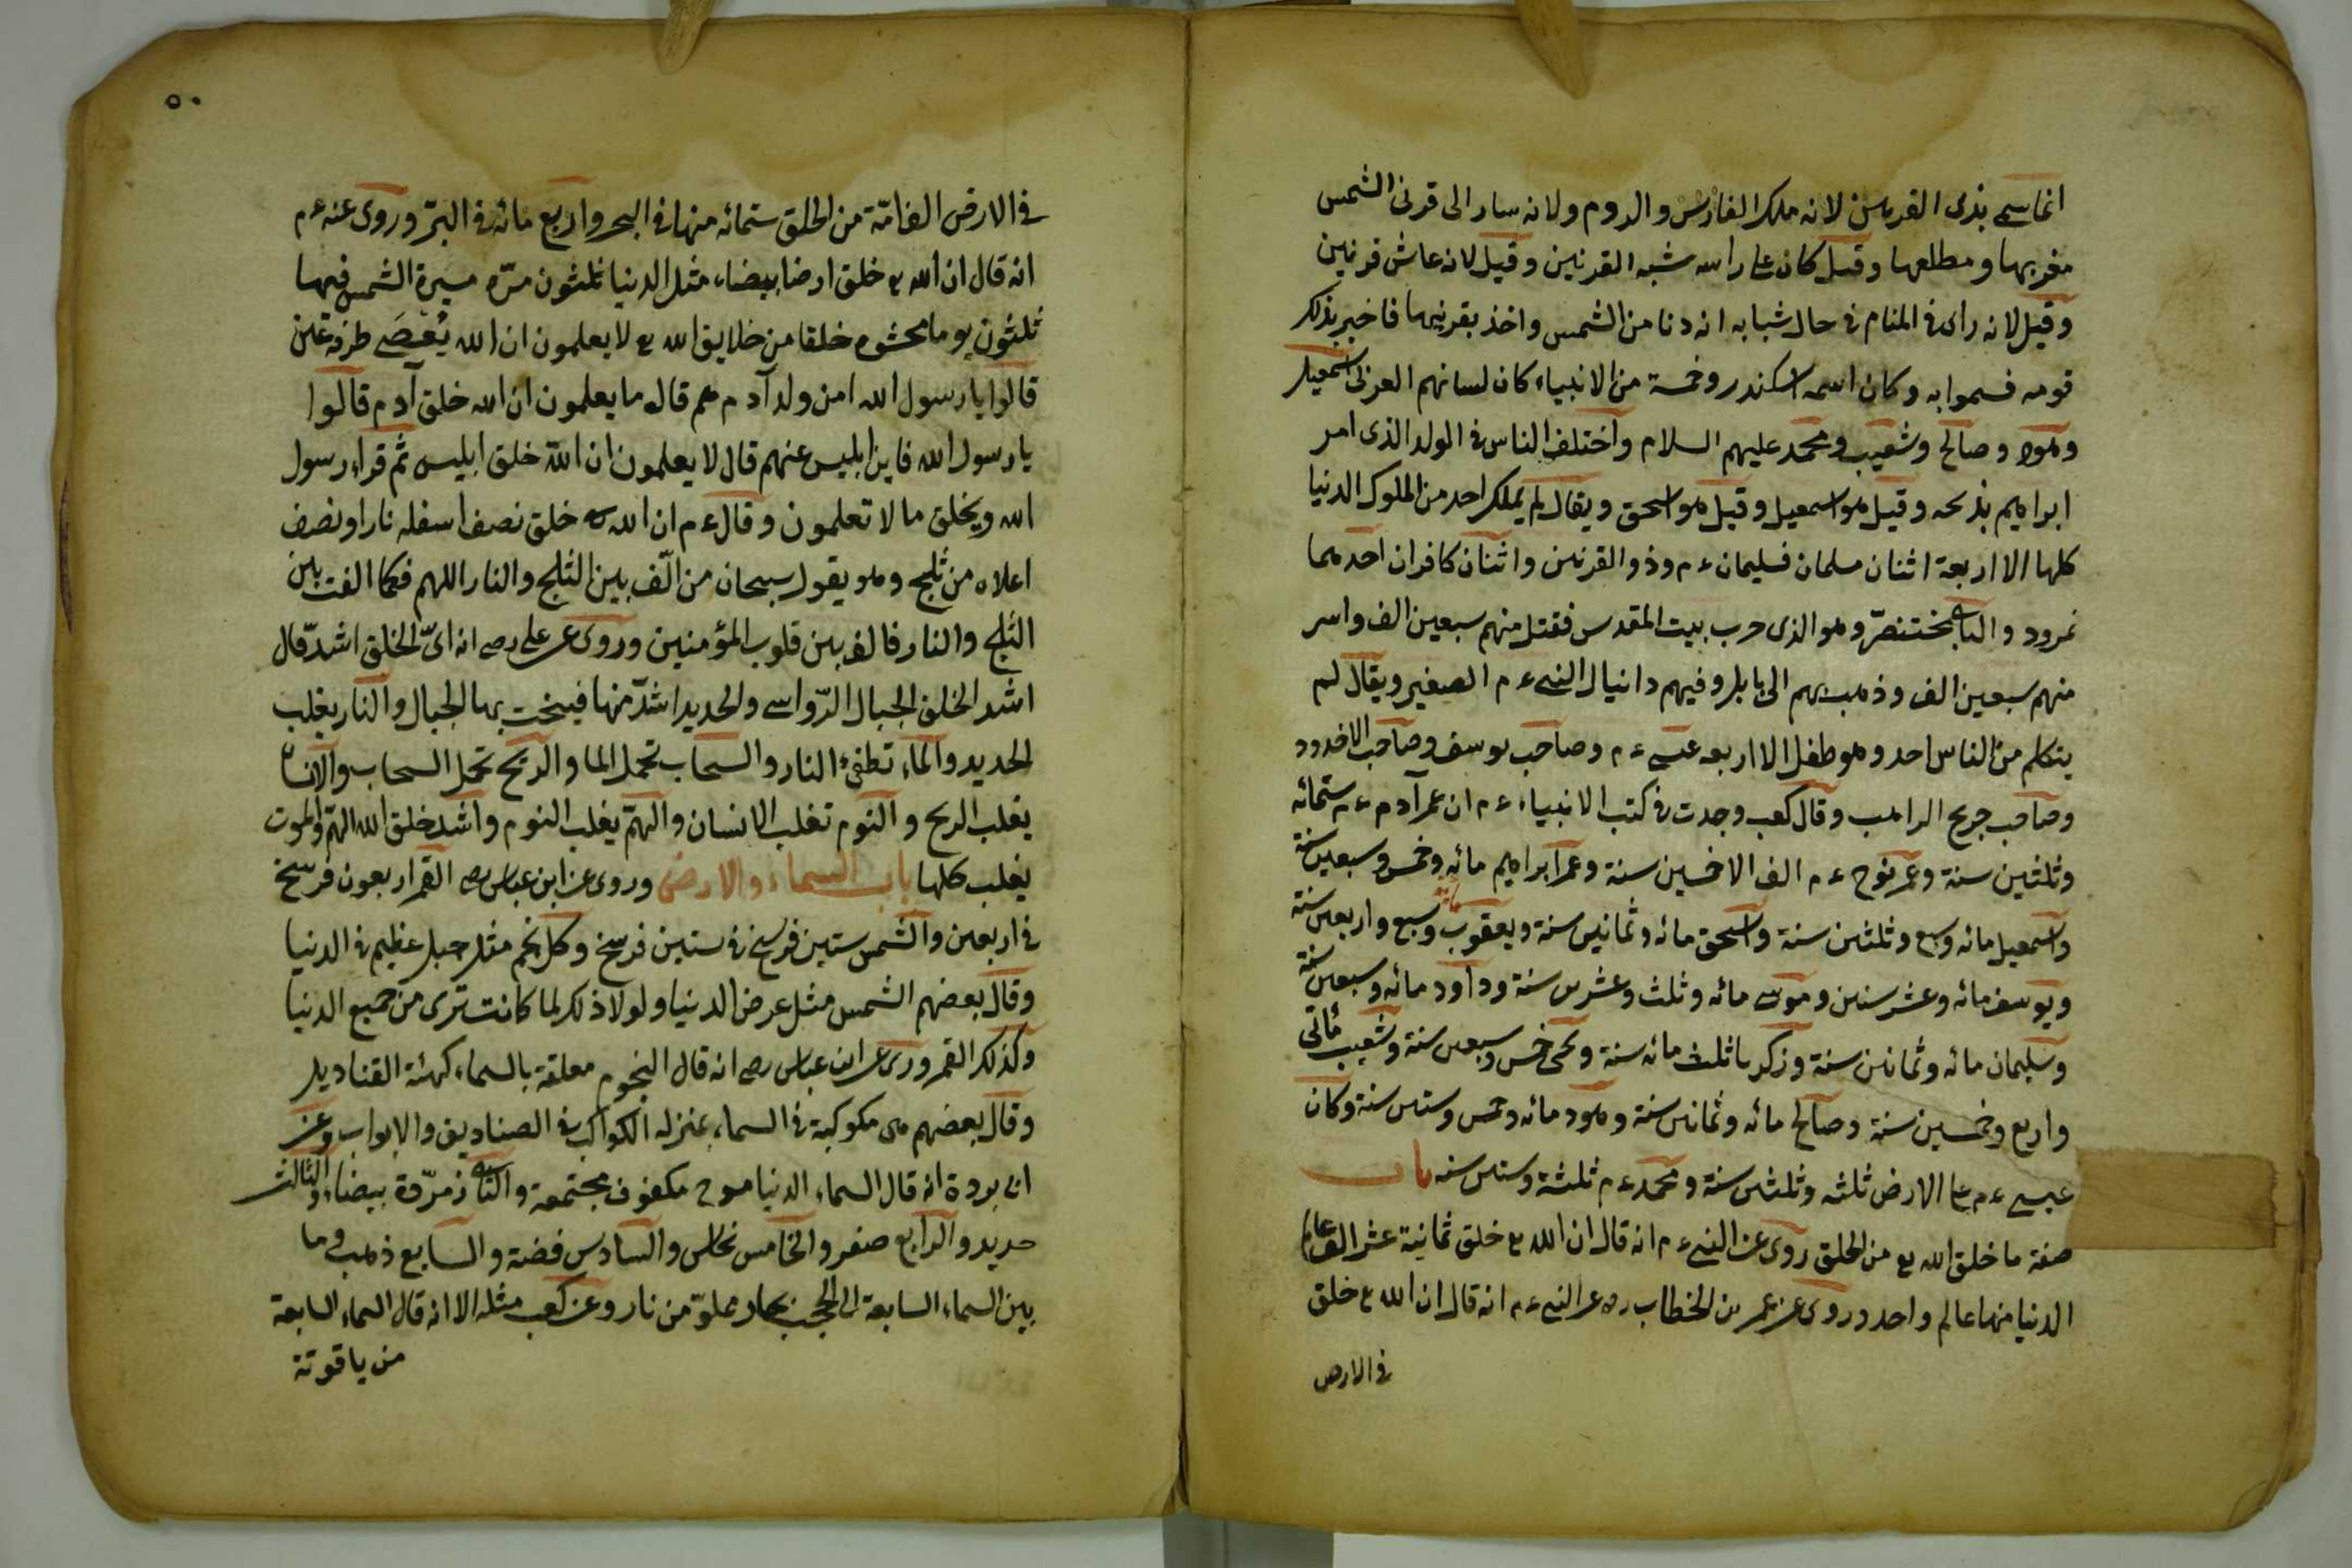 انما سمى بذى القرنين لانه ملك الفارس والروم ولانه سار الى قرنى الشمس
مغربها ومطلعها وقيل كان على راسه شبه القرنين وقيل لانه عاش قرنين
وقيل لانه راى فى المنام فى حال شبابه انه دنا من الشمس واخذ بقرنيها فاخبر بذلك
قومه فسموا به وكان اسمه اسكندر وخمسة من الانبياء كان لسانهم العربى اسمعيل
وهود وصالح وشعيب ومحمد عليهم السلام واختلف الناس فى الولد الذى امر
ابراهيم بذبحه وقيل هو اسمعيل وقيل هو اسحق ويقال لم يملك احد من الملوك الدنيا
كلها الا اربعة اثنان مسلمان فسليمان ءم وذو القرنين واثنان كافران احدهما
نمرود والثانى بختنصر وهو الذى حرب بيت المقدس فقتل منهم سبعين الف واسر
منهم سبعين الف وذهب بهم الى بابل وفيهم دانيال النبى ءم الصغير ويقال لم
يتكلم من الناس احد وهو طفل الا اربعه عيسى ءم وصاحب يوسف وصاحب الاخدود
وصاحب جريج الراهب وقال كعب وجدت فى كتب الانبياء ءم ان عمر آدم ءم ستمائه
وثلثين سنة وعمر نوح ءم الف الا خمسين سنة وعمر ابراهيم مائه وخمس وسبعين سنة
واسمعيل مائه وسبع وثلثين سنة واسحق مائه وثمانين سنة ويعقوب مائة وسبع واربعين سنة
ويوسف مائه وعشر سنين وموسى مائه وثلث وعشرين سنة وداود مائه وسبعين سنة
وسليمان مائه وثمانين سنة وزكريا ثلث مائه سنة ويحيى خمس وسبعين سنة وشعيب مأتى
واربع وخمسين سنة وصالح مائه وثمانين سنة وهود مائه وخمس وستين سنة وكان
عيسى ءم على الارض ثلثه وثلثين سنة ومحمد ءم ثلثة وستين سنه باب
صفة ما خلق الله تع من الخلق روى عن النبى ءم انه قال ان الله تع خلق ثمانية عشر الف عالم
الدنيا منها عالم واحد وروى عن عمر بن الخطاب رض عن النبى ءم انه قال ان الله تع خلق
فى الارض
٥٠
فى الارض الف امّة من الخلق ستمائه منها فى البحر واربع مائه فى البرّ وروى عنه ءم
انه قال ان الله تع خلق ارضا بيضاء مثل الدنيا ثلثون مرّه مسيرة الشمس فيها
ثلثون يوما محشوه خلقا من خلايق الله تع لا يعلمون ان الله يُعْصَى طرفة عين
قالوا يا رسول الله امن ولد آدم هم قال ما يعلمون ان الله خلق آدم قالوا
يا رسول الله فاين ابليس عنهم قال لا يعلمون ان الله خلق ابليس ثم قراء رسول
الله ويخلق ما لا تعلمون وقال ءم ان الله خلق نصف اسفله نارا ونصف
اعلاه من ثلج وهو يقول سبحان من الّف بين الثلج والنار اللهم فكما الفت بين
الثلج والنار فالف بين قلوب المؤمنين وروى عن على رض انه اىّ الخلق اشدّ قال
اشد الخلق الجبال الرّواسى والحديد اشدّ منها فينحت بها الجبال والنار يغلب
الحديد والماء تطفئ النار والسحاب تحمل الما والريح تحمل السحاب والانسان
يغلب الريح والنوم تغلب الانسان والهمّ يغلب النوم واشد خلق الله الهمّ والموت
يغلب كلها باب السماء والارض وروى عن ابن عباس رض القمر اربعون فرسخ
فى اربعين والشمس ستين فرسخ فى ستين فرسخ وكل نجم مثل جبل عظيم فى الدنيا
وقال بعضهم الشمس مثل عرض الدنيا ولولا ذلك لما كانت ترى من جميع الدنيا
وكذلك القمر وروى عن ابن عباس رض انه قال النجوم معلقة بالسماء كهيئة القناديل
وقال بعضهم هى مكوكبة فى السماء بمنزله الكواكب فى الصناديق والابواب وعن
ابى بردة انه قال السماء الدنيا موج مكفوف مجتمعة والثانى زمرّدة بيضاء والثالث
حديد والرابع صفر والخامس نحاس والسادس فضة والسابع ذهب وما
بين السماء السابعة الى الحجب بحار مملوّ من نار وعن كعب مثله الا انه قال السماء السابعة
من ياقوتة